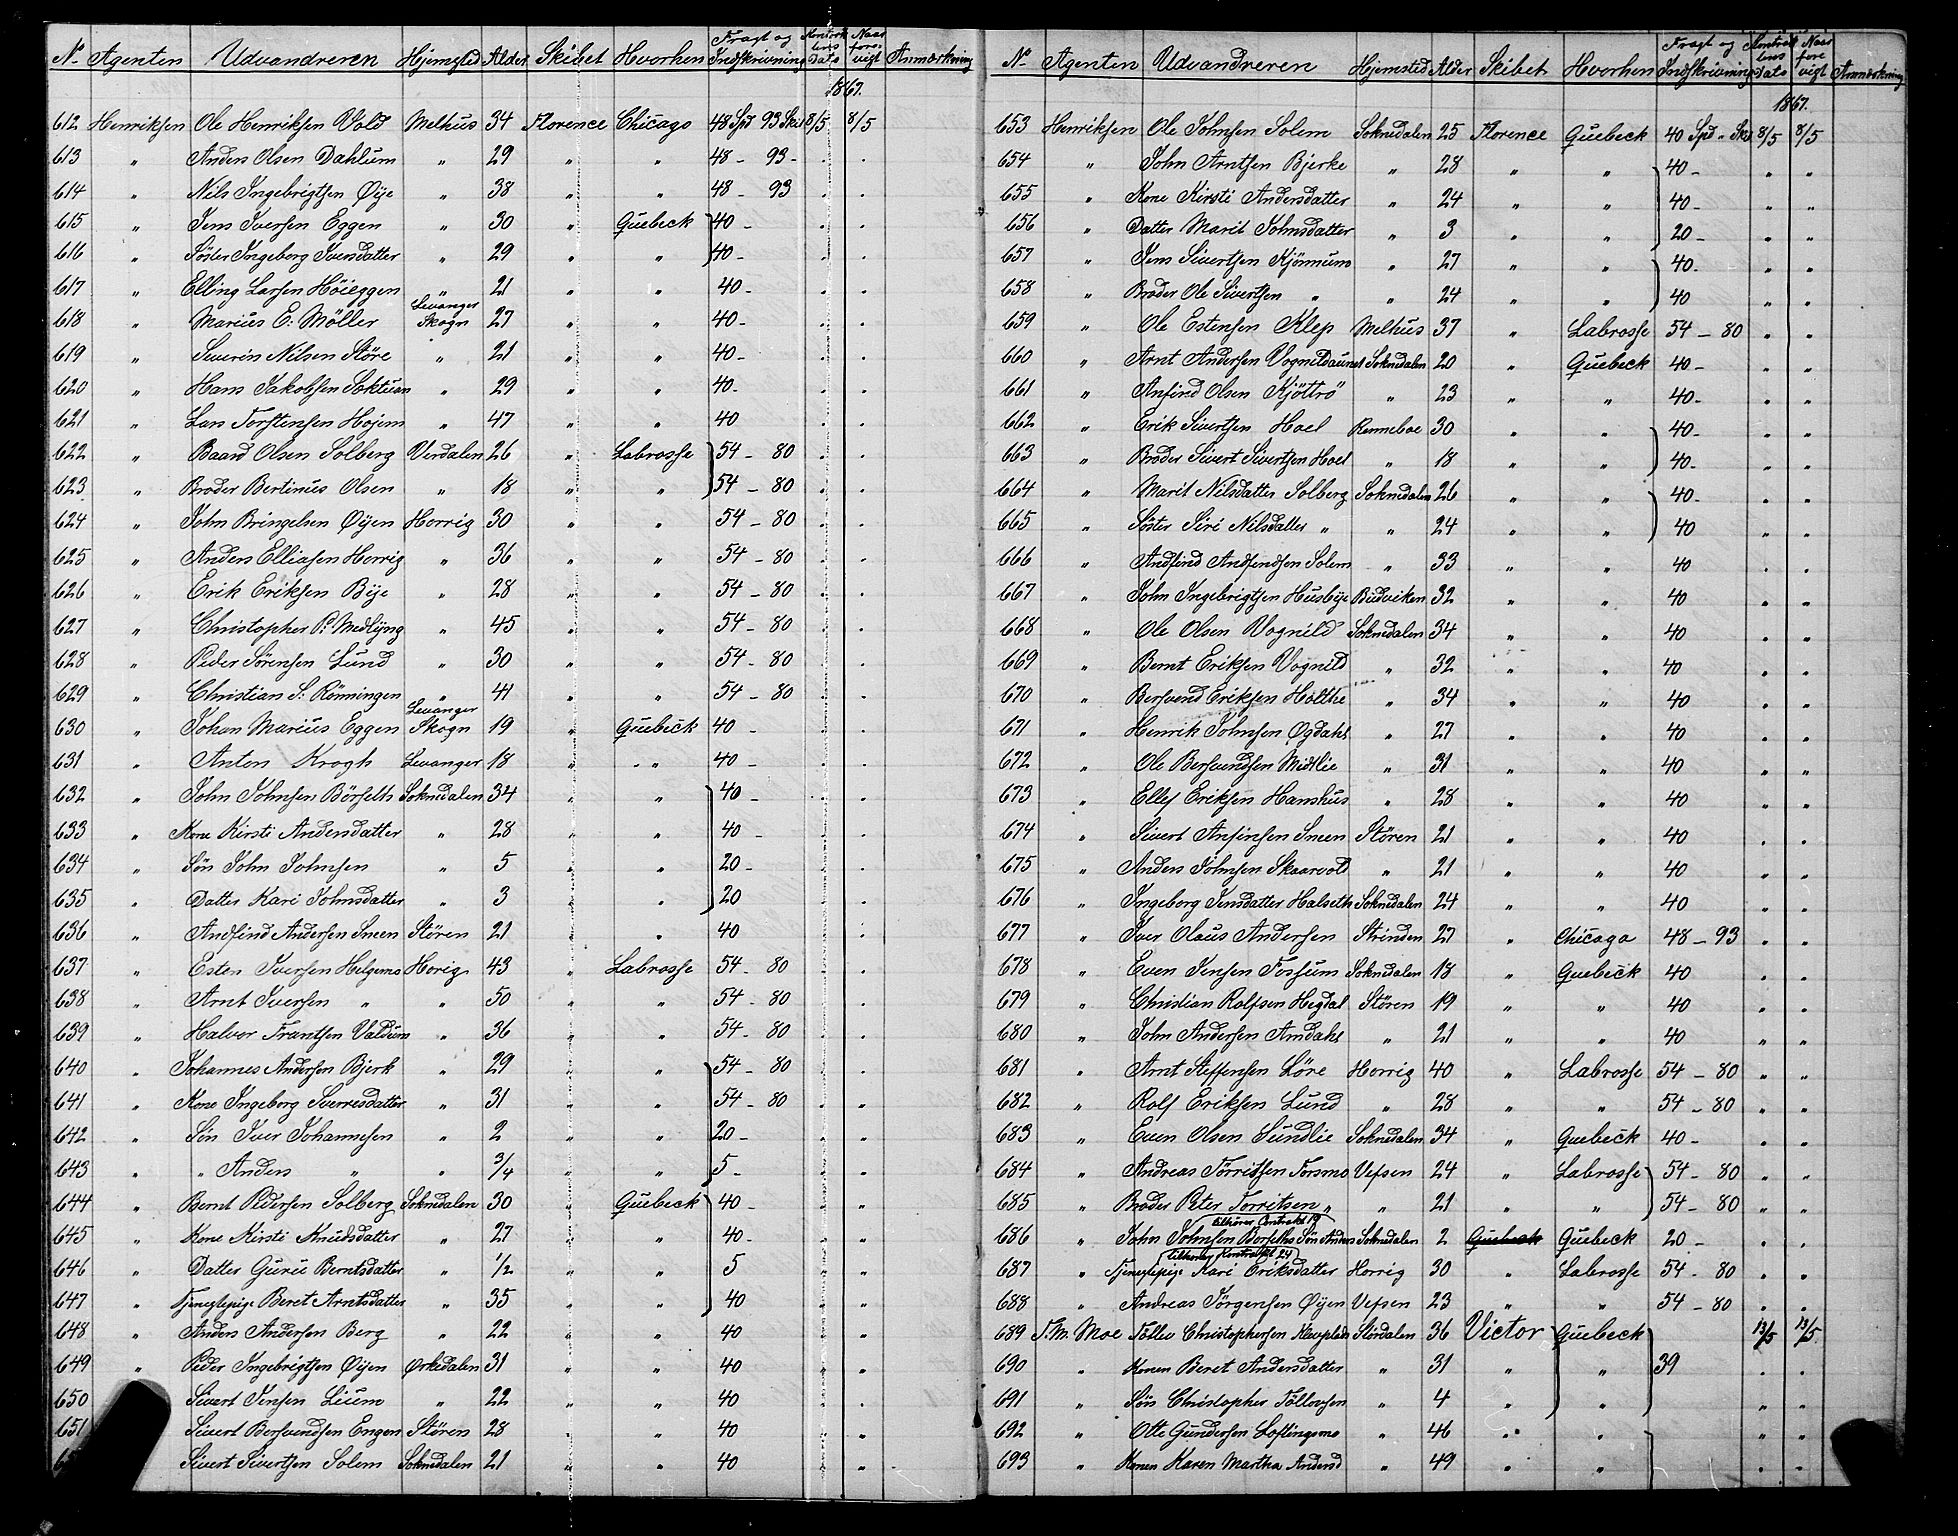 No Agenten Udvandreren Hjemsted Alder Skibet Hvorhen Fragt og Indskrivning Kontraktens Dato Naar forevigt Anmærkning
1867.
612 Henriksen Ole Henriksen Vold Melhus 34 Florence Chicago 48 Spd 93 Skil 8/5 8/5
613 " Anders Olsen Dahlum " 29 " " 48 - 93 - . .
614 " Nils Ingebrigtsen Øye " 38 " " 48 - 93 . .
615 " Jens Iversen Eggen " 30 " Quebeck 40 - . .
616 " Söster Ingeborg Iversdatter " 29 " " 40 - . .
617 " Elling Larsen Höieggen " 21 " " 40 - . .
618 " Marius E: Möller Levanger Skogn 27 " " 40 - . .
619 " Severin Nilsen Störe " 21 " " 40 - . .
620 " Hans Jakobsen Soktuen " 29 " " 40 - . .
621 " Lars Torstensen Hojem " 47 " " 40 . .
622 " Baard Olsen Solberg Verdalen 26 " Labrosse 54 - 80 . .
623 " Broder Bertinus Olsen " 18 " " 54 - 80 . .
624 " John Bringelsen Øyen Horrig 30 " " 54 - 80 . .
625 " Anders Elliasen Horrig " 36 " " 54 - 80 . .
626 " Erik Eriksen Bye " 28 " " 54 - 80 . .
627 " Christopher P: Medlyng " 45 " " 54 - 80 . .
628 " Peder Sörensen Lund " 30 " " 54 - 80 . .
629 " Christian S: Rönningen " 41 " " 54 - 80 . .
630 " Johan Marius Eggen Levanger Skogn 19 " Quebeck 40 - . .
631 " Anton Krogh Levanger 18 " " 40 - . .
632 " John Johnsen Börseth Soknedalen 34 " " 40 - . .
633 " Kone Kirsti Andersdatter " 28 " " 40 - . .
634 " Sön John Johnsen " 5 " " 20 - . .
635 " Datter Kari Johnsdatter " 3 " " 20 . .
636 " Andfind Andersen Sneen Stören 21 " " 40 . .
637 " Esten Iversen Helgemo Horig 43 " Labrosse 54 - 80 . .
638 " Arnt Iversen " " 50 " " 54 - 80 . .
639 " Halvor Frantsen Valdum " 36 " " 54 - 80 . .
640 " Johannes Andersen Bjerk " 29 " " 54 - 80 . .
641 " Kone Ingeborg Sverresdatter " 31 " " 54 - 80 " "
642 " Sön Iver Johannesen " 2 " " 20 - " "
643 " " Anders " " 3/4 " " 5 - " "
644 " Bernt Pedersen Solberg Soknedalen 30 " Quebeck 40 - " "
645 " Kone Kirsti Knudsdatter " 27 " " 40 - " "
646 " Datter Guru Berntsdatter " 1/2 " " 5 " "
647 " Tjenestepige Beret Arntsdatter " 35 " " 40 " "
648 " Anders Andersen Berg " 22 " " 40 " "
649 " Peder Ingebrigtsen Øyen Ørkedalen 31 " " 40 " "
650 " Sivert Jensen Lium " 22 " " 40 " .
651 " Sivert Bersvendsen Engen Stören 28 " " 40 " "
Sivert Sivertsen Solem Soknedalen 21 " " 40 " .
No Agenten Udvandreren Hjemsted Alder Skibet Hvorhen Fragt og Indskrivning Kontraktens Dato Naar forevigt Anmærkning
1867.
653 Henriksen Ole Johnsen Solem Soknedalen 25 Florence Quebeck 40 Spd " Skil 8/5 8/5
654 " John Arntsen Bjerke " 28 " " 40 - " "
655 " Kone Kirsti Andersdatter " 24 " " 40 - " "
656 " Datter Marit Johnsdatter " 3 " " 20 - " "
657 " Jens Sivertsen Kjönnum " 27 " " 40 - " "
658 " Broder Ole Sivertsen " " 24 " " 40 " "
659 " Ole Estensen Klep Melhus 37 " Labrosse 54 - 80 " "
660 " Arnt Andersen Vognildaunet Soknedalen 20 " Quebeck 40 - " "
661 " Anfind Olsen Kjöttrö " 23 " " 40 - " "
662 " Erik Sivertsen Hoel Renneboe 30 " " 40 - " "
663 " Broder Sivert Sivertsen Hoel " 18 " " 40 - " "
664 " Marit Nilsdatter Solberg Soknedalen 26 " " 40 - " "
665 " Söster Siri Nilsdatter " " 24 " " 40 " "
666 " Andfind Andfindsen Solem " 33 " " 40 . .
667 " John Ingebrigtsen Husbye Budviken 32 " " 40 " "
668 " Ole Olsen Vognild Soknedalen 34 " " 40 " "
669 " Bernt Eriksen Vognild " 32 " " 40 " "
670 " Bersvend Eriksen Holthe " 34 " " 40 " "
671 " Henrik Johnsen Øgdahl " 27 " " 40 " .
672 " Ole Bersvendsen Midtlie " 31 " " 40 " "
673 " Ellef Eriksen Hanshus " 28 " " 40 " "
674 " Sivert Anfinsen Sneen Stören 21 " " 40 . .
675 " Anders Johnsen Skaarvold " 21 " " 40 " .
676 " Ingeborg Jensdatter Halseth Soknedalen 24 " " 40 " .
677 " Iver Olaus Andersen Strinden 27 " Chicago 48 - 93 " .
678 " Even Jensen Fossum Soknedalen 18 " Quebeck 40 " .
679 " Christian Rolfsen Hegdal Stören 19 " " 40 " "
680 " John Andersen Amdahl " 21 " " 40 " "
681 " Arnt Steffensen Löre Horrig 40 " Labrosse 54 - 80 " "
682 " Rolf Eriksen Lund " 28 " " 54 - 80 " "
683 " Even Olsen Sundlie Soknedalen 34 " Quebeck 40 - . .
684 " Andreas Törritsen Forsmo Vefsen 24 " Labrosse 54 - 80 " "
685 " Broder Peter Torritsen " " 21 " " 54 - 80 " "
tilhörer Contrakt 19
686 " John Johnsen Borseths Sön Anders Soknedalen 2 Quebeck Quebeck 20 - . .
tilhörer Kontrakt 24
687 " Tjenestepige Kari Eriksdatter Horrig 30 " Labrosse 54 - 80 . .
688 " Andreas Jörgensen Øyen Vefsen 23 " " 54 - 80 . .
689 T. M. Moe Töllev Christophersen Stördalen 36 Victor Quebeck 13/5 13/5
690 " Konen Beret Andersdatter " 31 " " 39 . .
691 " Sön Christopher Töllevsen " 4 " " " "
692 " Otte Gundersen Loftingsmo " 46 " " " "
693 " Konen Karen Martha Andersd " 49 " " " "